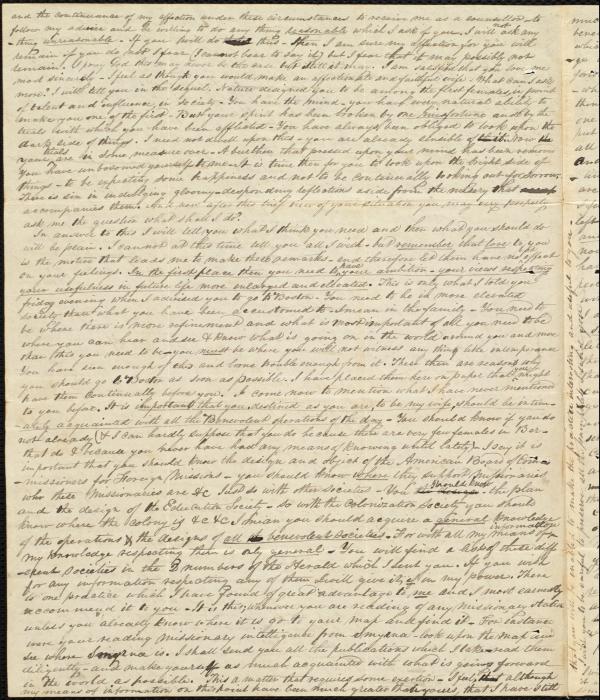 and the continuance of my affection under these circumstances to receive me as a counsellor - to
follow my advice and be willing to do any thing reasonable which I ask of you. I will ask any
-thing unreasonable - If you will do this - then I am sure my affection for you will
remain if you do not I fear (I cannot bear to say it) but I fear that it may possibly not
remain. I pray God this may never be the case but still it may. I am satisfied that you love me
most sincerely - I feel as though you would make an affectionate and faithful wife. What can I ask
more? I will tell you in the sequel. Nature designed you to be among the first females in point
of talent and influence in society - You have the mind, you have every natural ability to
make you one of the first. But your spirit has been broken by one misfortune and by the
trials with which you have been afflicted - You have always been obliged to look upon the
dark side of things. I need not dwell upon this - you are already sensible of it. Now the
years are in some measure over. At least those that pressed upon your mind has
You have unbosomed yourself to me. It is time then for you to look upon the bright side of
things - to be expecting some happiness and not to be continually looking out for sorrow.
There is sin in indulging gloomy - desponding reflections aside from the misery that
accompanies them. And now after this brief view of your situation you may very properly
ask me the question what shall I do?
In answer to this I will tell you what I think you need and then what you should do
will be plain. I cannot at this time tell you all I wish - but remember that love to you
is the motive that leads me to make these remarks - and therefore let them have no effect
on your feelings. In the first place then you need to have your ambition - your views respecting
your usefulness in future life more enlarged and elevated. This is only what I told you
friday evening when I advised you to go to Boston. You need to be in more elevated
society than what you have been accustomed to - I mean in the family - You need to
be where there is more refinement and what is most important of all you need to be
where you can hear and see & know what is going on in the world around you and more
than this you need to be - you must be where you will not witness any thing like intemperance
You have seen enough of this and borne trouble enough from it. These then are reasons why
you should go to Boston as soon as possible. I have placed them here on paper that you might
have them continually before you. I come now to mention what I have never mentioned
to you before. It is important that you destined as you are, to be my wife should be intim-
-ately acquainted with all the benevolent operations of the day - You should know if you do
not already (& I can hardly suppose that you do because there are very few females in Bos-
that do & because you never have had any means of knowing until lately) I say it is
important that you should know the design and object of the American Board of Com-
-missioners for Foreign Missions - you should know where they support missionaries
who these Missionaries are &c. Just so with other societies - You should know the plan
and the design of the Education Society - so with the Colonization Society you should
know where the Colony is &c &c I mean you should acquire a general knowledge
of the operations & the designs of all benevolent societies - For with all my means of information
my knowledge respecting them is only general - You will find a list of these diff-
-erent societies in the 3 numbers of the Herald which I sent you. If you wish
for any information respecting any of them I will give it, if in my power. There
is one practice which I have found of great advantage to me and I most earnestly
recommend it to you - It is this, whenever you are reading of any missionary station
unless you already know where it is go to your map and find it - For instance
were you reading missionary intelligence from Smyrna - look upon the map and
see where Smyrna is. I shall send you all the publications which I take - read them
diligently - and make yourself as much acquainted with what is going forward
in the world as possible. This is a matter that requires some exertion - I feel, that although
my means of information on this point have been much greater than yours that I have still